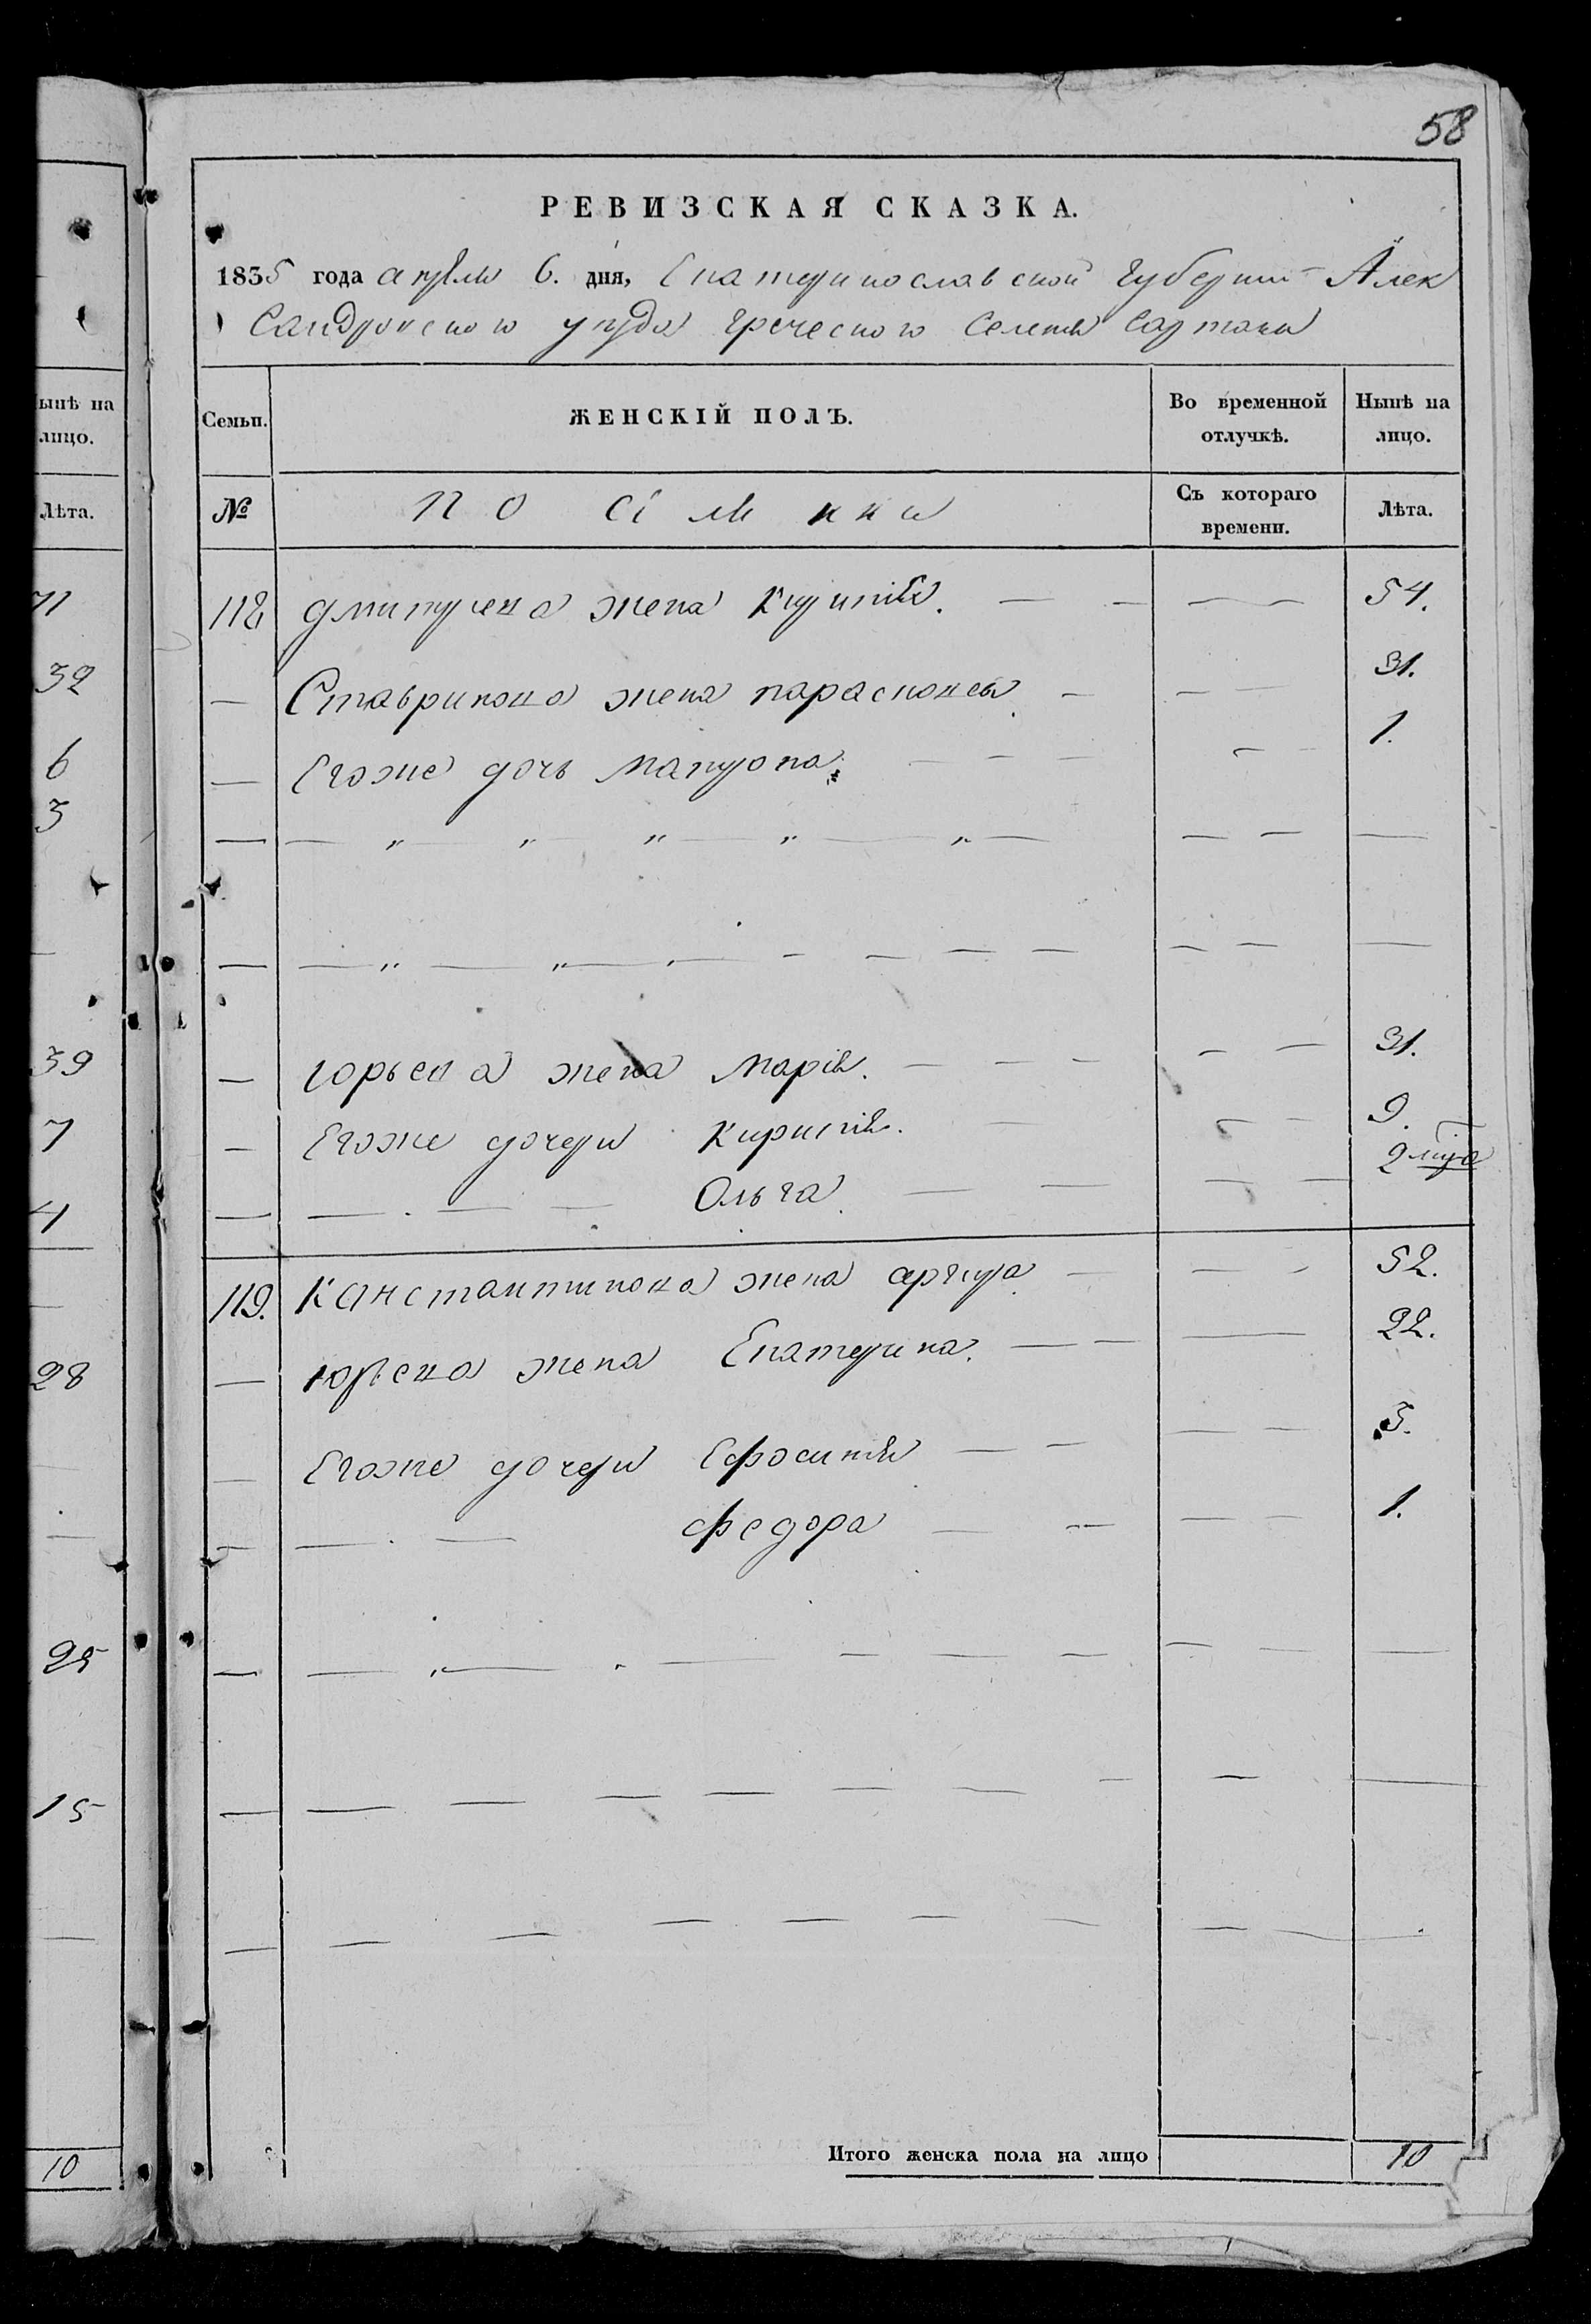 58
РЕВИЗСКАЯ СКАЗКА.
1835 года апреля 6. дня, Екатеринославской Губернии Алек
сандровского уезда греческого селения Сартаны
ынѣ на лицо.
Семьи.
ЖЕНСКІЙ ПОЛЪ.
Во временной отлучкѣ.
Нынѣ на лицо.
Лѣта.
№
Поселянки
Съ котораго времени.
Лѣта.
71
118 дмитриева жена Кириакія. — — — — 54.
32
— Ставринова жена параскокея — — — 31.
6
— Егоже дочь Матрона — — — — — 1.
3
— — „ — „ — „ — „ — „ — — — —
— — „ — „ — — — — — — — —
39
— юрьева жена Марія. — — — — — 31.
7
— Егоже дочери Кириакія. — — — 9.
4
— — . — — Ольга — — — — 2 мца
119. Канстантинова жена аргира — — — 52.
28
— юрьева жена Екатерина. — — — 22.
— Егоже дочери Ефосиния — — — — 3.
— — . — Федора — — — — 1.
25
— — „ — . — — — — — — —
15
— — — — — — — — — —
— — — — — — — — —
10
Итого женска пола на лицо 10